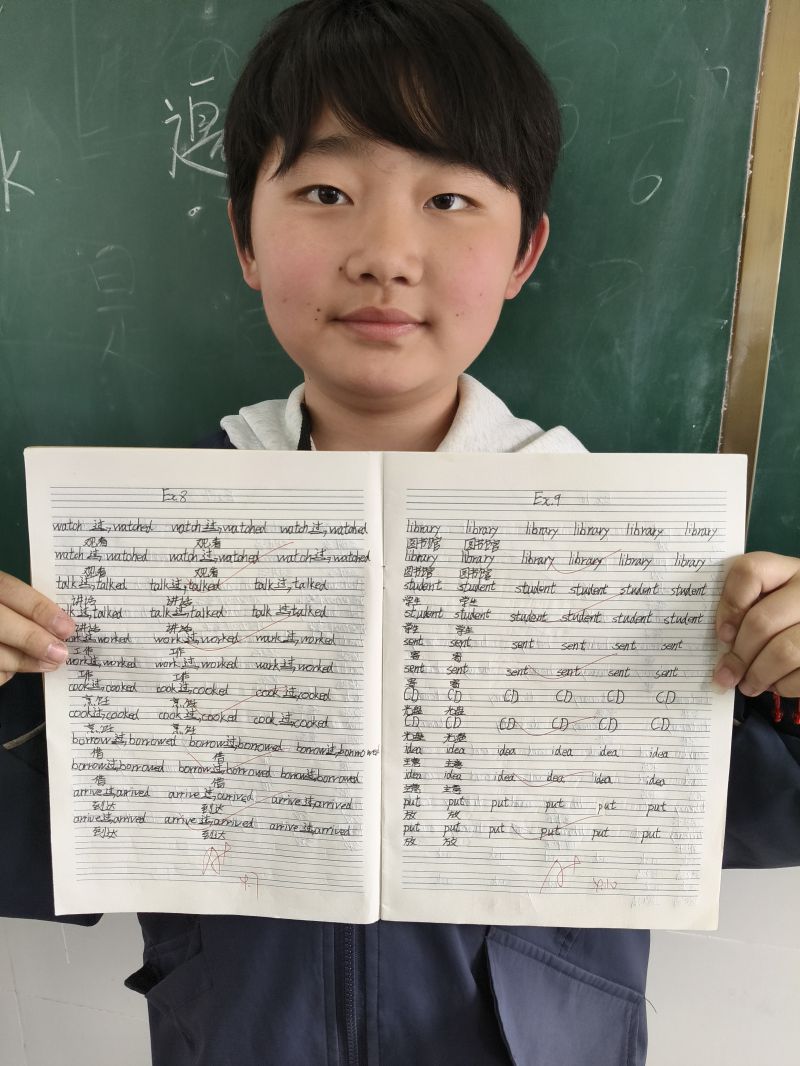 Ex.8
watch 过,watched watch过,watched watch过,watched
观看 观看
watch过,watched watch过,watched watch过,watched
观看 观看
talk过,talked talk过,talked talk过,talked
讲话 讲话
talk过,talked talk过,talked talk过,talked
讲话 讲话
work过,worked work过,worked work过,worked
工作 工作
work过,worked work过,worked work过,worked
工作 工作
cook过,cooked cook过,cooked cook过,cooked
烹饪 烹饪
cook过,cooked cook过,cooked cook过,cooked
烹饪 烹饪
borrow过,borrowed borrow过,borrowed borrow过,borrowed
借 借
borrow过,borrowed borrow过,borrowed borrow过,borrowed
借 借
arrive过,arrived arrive过,arrived arrive过,arrived
到达 到达
arrive过,arrived arrive过,arrived arrive过,arrived
到达 到达
A+
4.7
Ex.9
library library library library library library
图书馆 图书馆
library library library library library library
图书馆 图书馆
student student student student student student
学生 学生
student student student student student student
学生 学生
sent sent sent sent sent sent
寄 寄
sent sent sent sent sent sent
寄 寄
CD CD CD CD CD CD
光盘 光盘
CD CD CD CD CD CD
光盘 光盘
idea idea idea idea idea idea
主意 主意
idea idea idea idea idea idea
主意 主意
put put put put put put
放 放
put put put put put put
放 放
A+
4.10